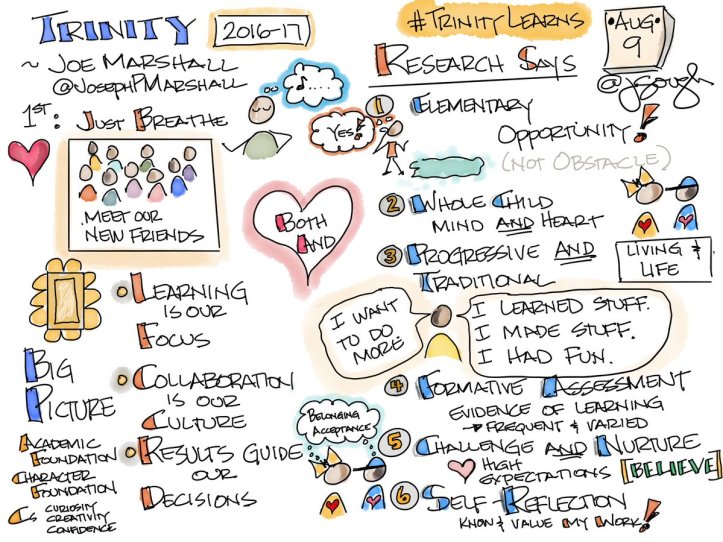 TRINITY 2016-17
~ JOE MARSHALL
@JOSEPHPMARSHALL
1ST: JUST BREATHE
MEET OUR
NEW FRIENDS
BOTH
AND
LEARNING
IS OUR
FOCUS
BIG
PICTURE
COLLABORATION
IS OUR
CULTURE
RESULTS GUIDE
OUR
DECISIONS
ACADEMIC
FOUNDATION
CHARACTER
FOUNDATION
Cs CURIOSITY
CREATIVITY
CONFIDENCE
#TRINITYLEARNS
AUG
9
@jgough
RESEARCH SAYS
YES!
1 ELEMENTARY
OPPORTUNITY!
(NOT OBSTACLE)
2 WHOLE CHILD
MIND AND HEART
3 PROGRESSIVE AND
TRADITIONAL
LIVING &
LIFE
I WANT
TO DO
MORE
I LEARNED STUFF.
I MADE STUFF.
I HAD FUN.
4 FORMATIVE ASSESSMENT
EVIDENCE OF LEARNING
→ FREQUENT & VARIED
BELONGING
ACCEPTANCE
5 CHALLENGE AND NURTURE
HIGH
EXPECTATIONS [BELIEVE]
6 SELF-REFLECTION
KNOW & VALUE MY WORK!